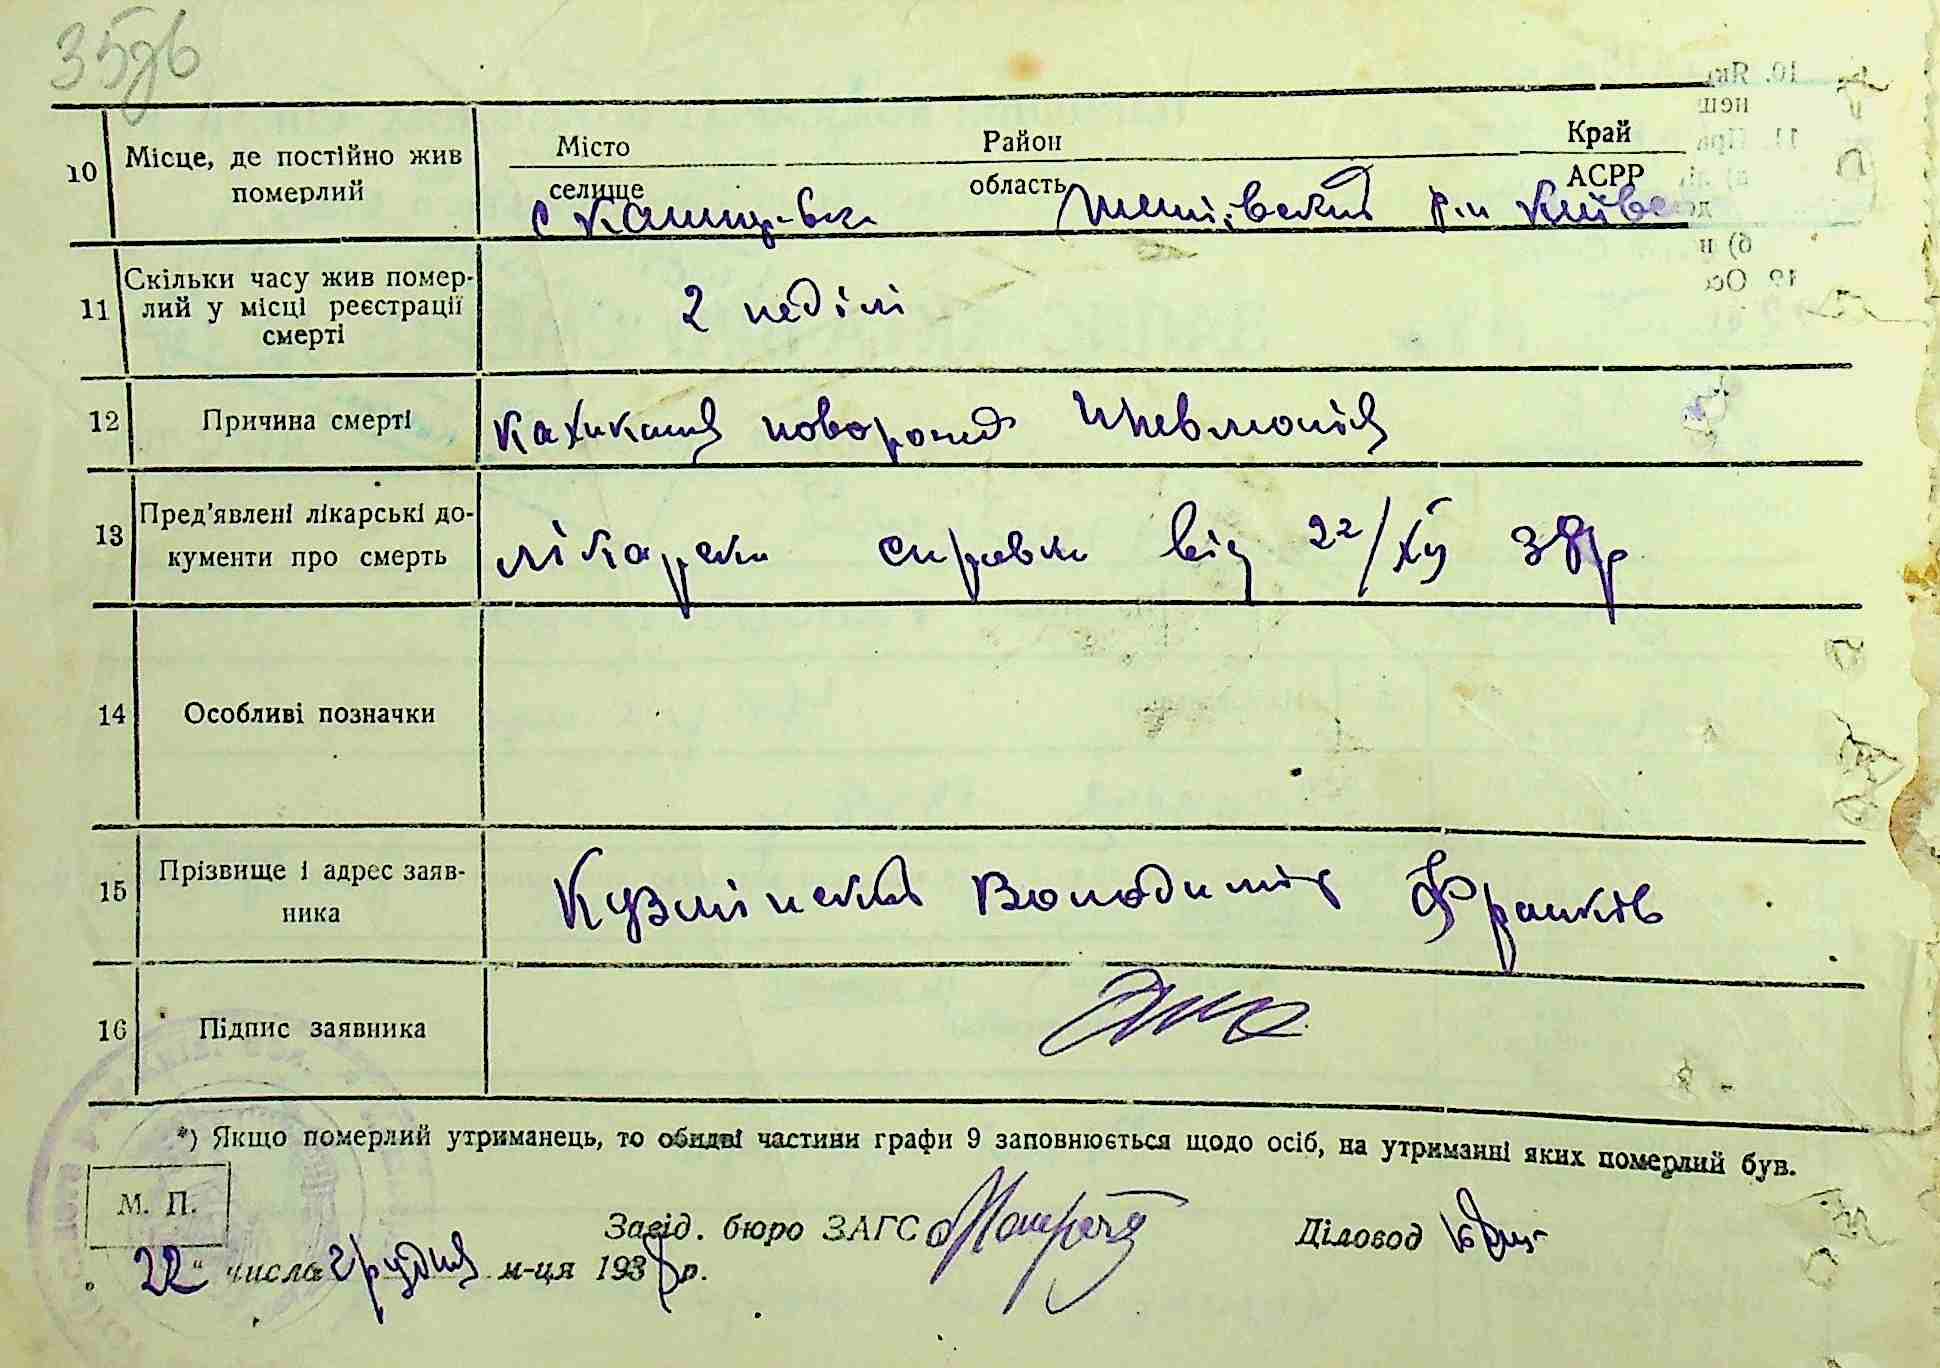 35зв
10 Місце, де постійно жив померлий
Місто Район Край
селище область АСРР
с р-н Київс
11 Скільки часу жив помер-
лий у місці реєстрації
смерті
2 неділі
12 Причина смерті
пневмонія
13 Пред'явлені лікарські до-
кументи про смерть
лікарськ справка від 22/XII 38р
14 Особливі позначки
15 Прізвище і адрес заяв-
ника
Кузмінський Володимір Франків
16 Підпис заявника
*) Якщо померлий утриманець, то обидві частини графи 9 заповнюється щодо осіб, на утриманні яких померлий був.
М. П.
Завід. бюро ЗАГС Діловод
„22" числа грудня м-ця 1938р.